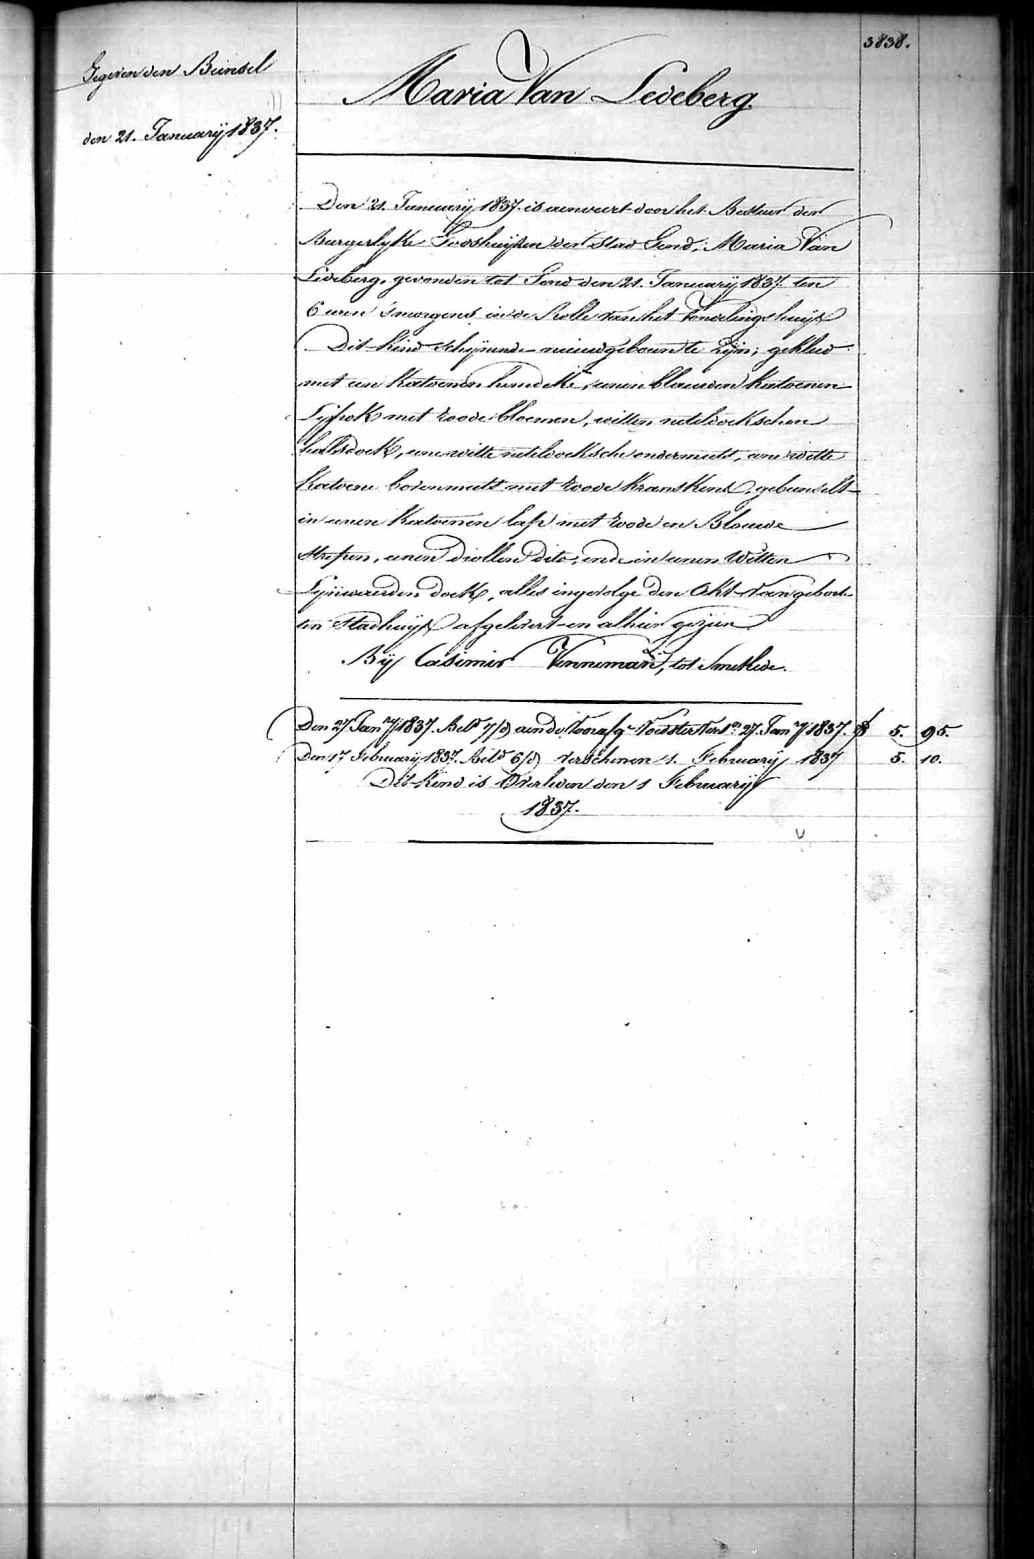 3838.
Gegeven den Bunsel
den 21. Januarÿ 1837.
Maria Van Ledeberg
Den 21. Januarÿ 1837. is aenveert door het Bestuer der
Burgerlyke Godshuÿsen der Stad Gend, Maria Van
Ledeberg, gevonden tot Gend den 21. Januarÿ 1837 ten
6 uren s'morgens in de Rolle van het Vondelingshuÿs
Dit kind schÿnende nieuwgeboren te zÿn; gekleed
met een katoenen hemdeke, eenen blauwen katoenen
Lÿfrok met roode bloemen, witten neteldoekschen
halsdoek, eene witte neteldoeksche ondermuts, eene witte
katoene bovenmuts met roode kranskens, gebunselt
in eenen katoenen lap met roode en Blauwe
strepen, eenen diollen dito, ende in eenen Witten
Lÿnwaerden doek, alles ingevolge den Akt van geboort
ten Stadhuÿse afgelevert en alhier gezien
Bÿ Casimir Venneman, tot Smetlede.
Den 27 Janrÿ 1837. Beld 7/d aen de Voester 27. Janrÿ 1837. 5. 95.
Den 1n Februarÿ 1837. Beld 6/d verschenen 1. Februarÿ 1837 5. 10.
Dit Kind is Overleden den 1 Februarÿ
1837.